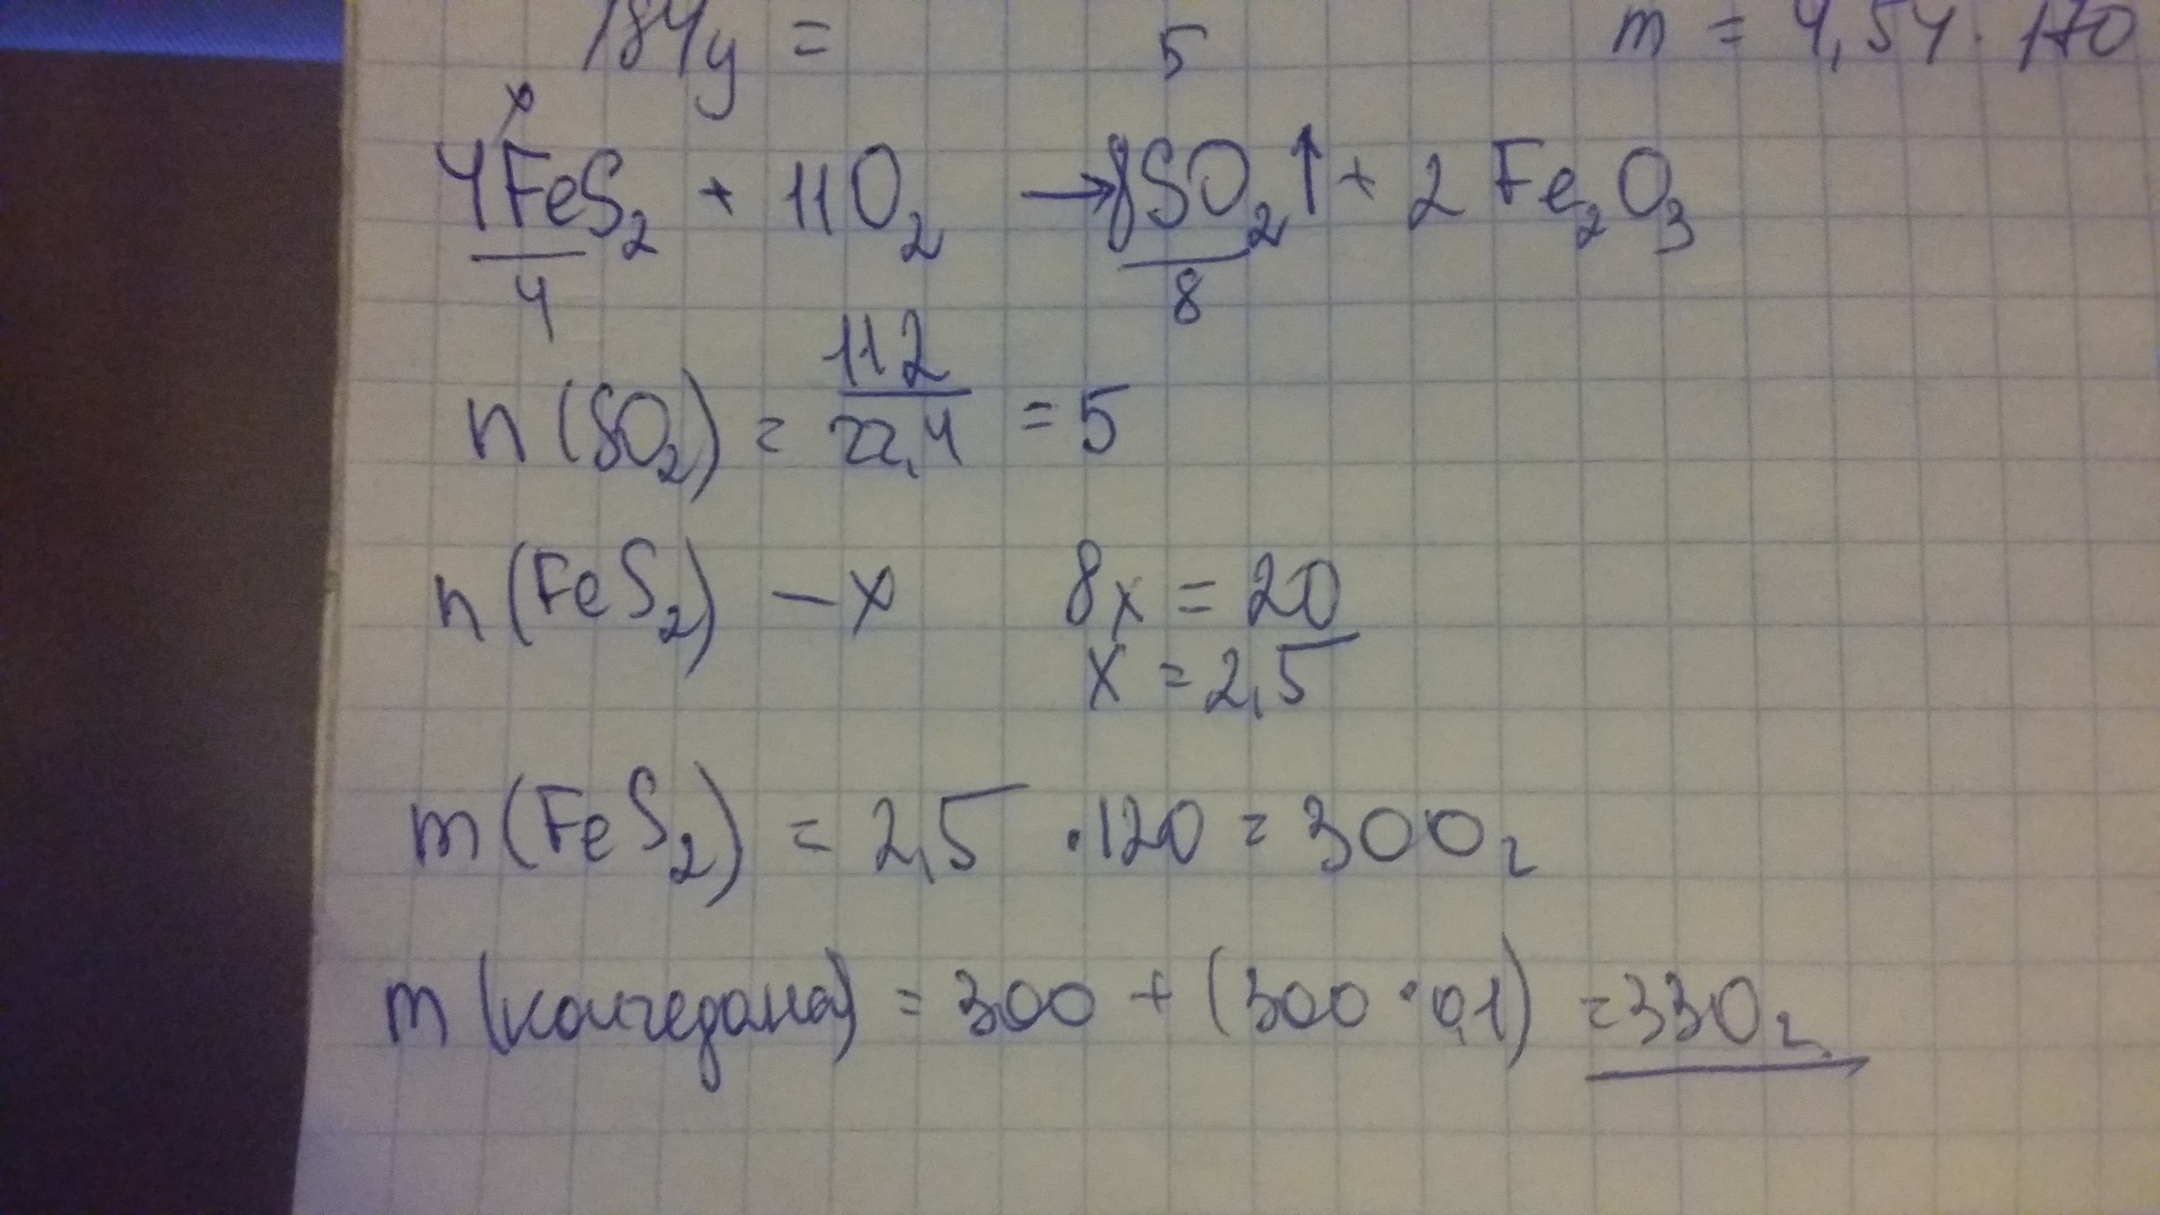 184y =
5
m = 4,54 · 170
x
4FeS₂ + 11O₂ → 8SO₂↑ + 2Fe₂O₃
4
8
n(SO₂) = 112/22,4 = 5
n(FeS₂) – x 8x = 20
x = 2,5
m(FeS₂) = 2,5 · 120 = 300г
m(колчедана) = 300 + (300 · 0,1) = 330г.